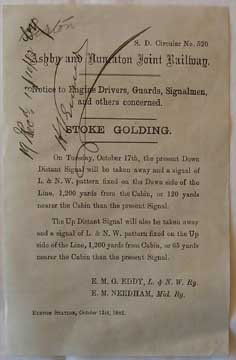 S. D. Circular No. 520
Ashby and Nuneaton Joint Railway.
Notice to Engine Drivers, Guards, Signalmen,
and others concerned.
STOKE GOLDING.
On Tuesday, October 17th, the present Down
Distant Signal will be taken away and a signal of
L. & N. W. pattern fixed on the Down side of the
Line, 1,200 yards from the Cabin, or 120 yards
nearer the Cabin than the present Signal.
The Up Distant Signal will also be taken away
and a signal of L. & N. W. pattern fixed on the Up
side of the Line, 1,200 yards from Cabin, or 65 yards
nearer the Cabin than the present Signal.
E. M. G. EDDY, L. & N. W. Ry.
E. M. NEEDHAM, Mid. Ry.
EUSTON STATION, October 12th, 1882.